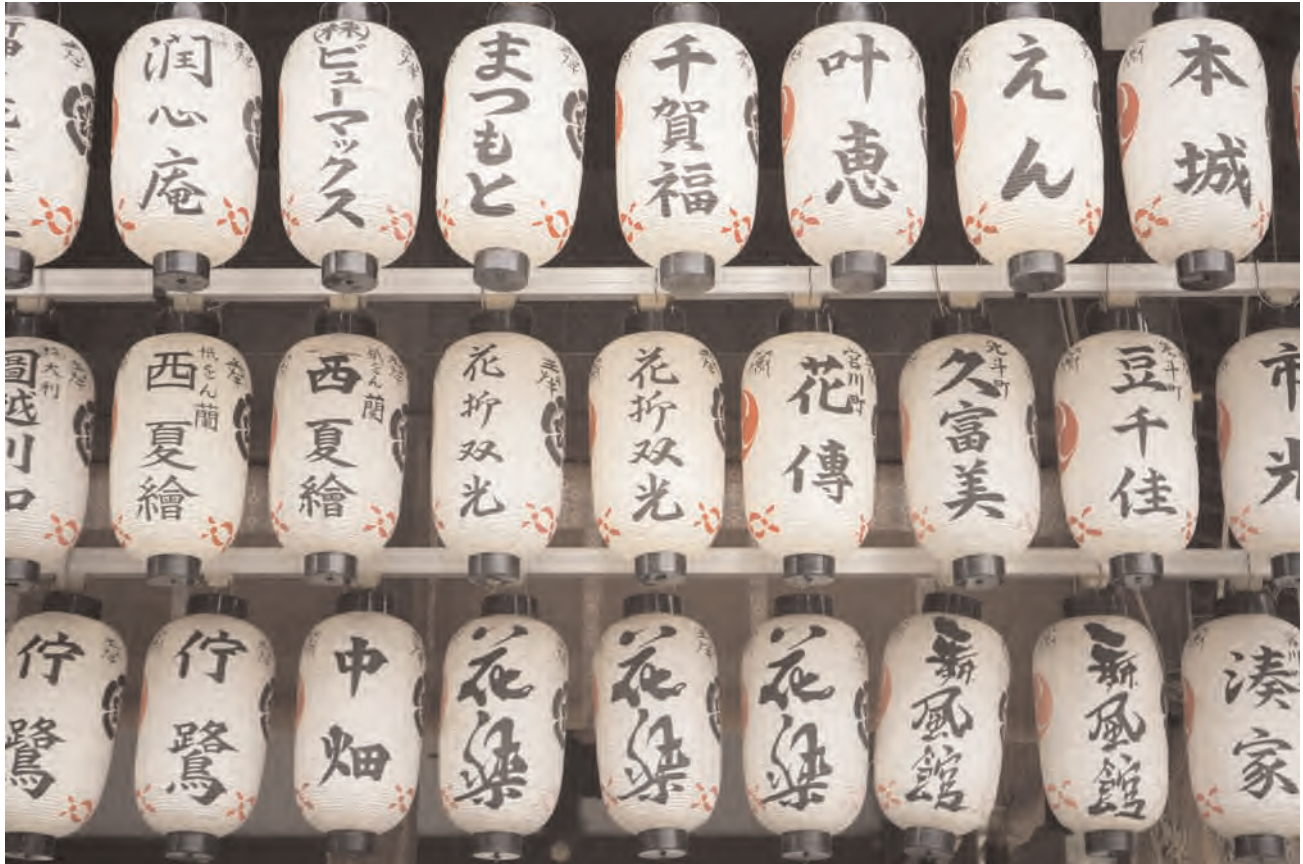 潤心庵
㈱ビューマックス
まつもと
千賀福
叶恵
えん
本城
越川口
祇をん 蘭
西夏繪
祇をん 蘭
西夏繪
花 双光
花 双光
宮川町
花傳
先斗町
久富美
先斗町
豆千佳
市光
佇鷺
佇鷺
中畑
花
花
花
新風館
新風館
湊家